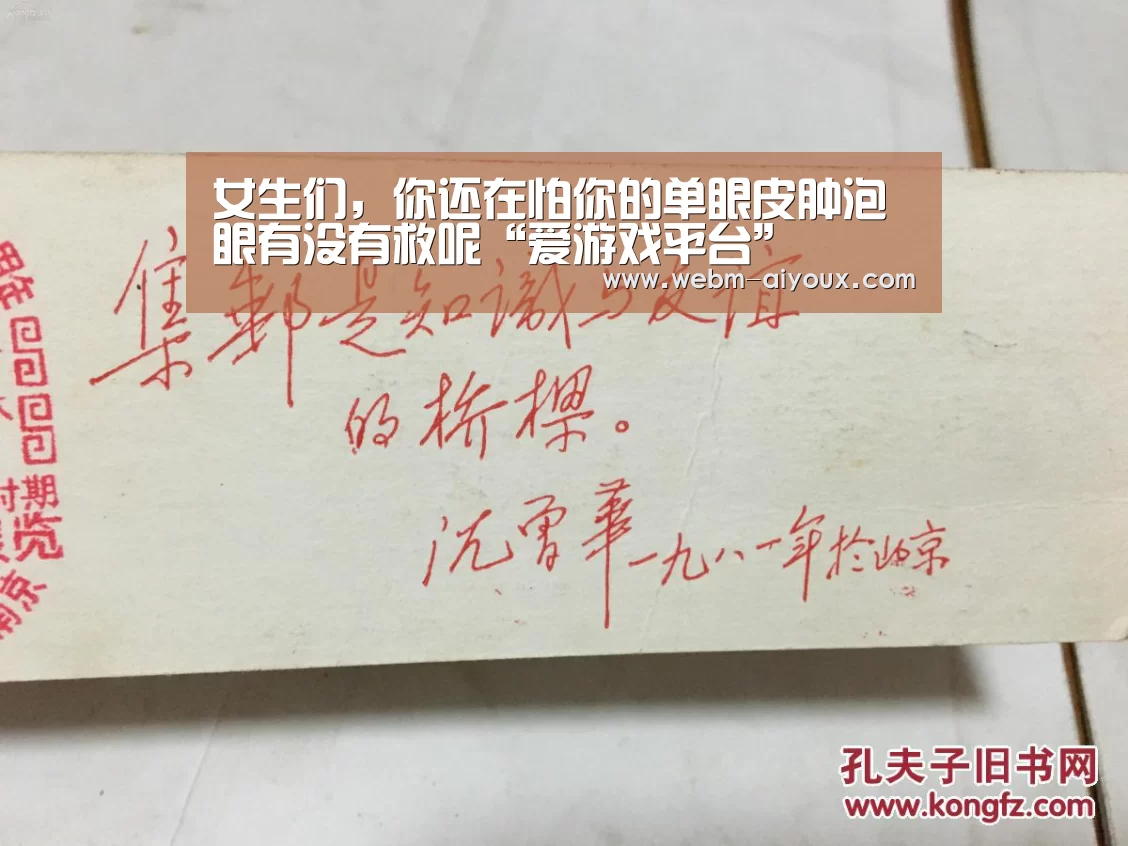 女生们，你还在怕你的单眼皮肿泡
眼有没有救呢“爱游戏平台”
www.webm-aiyoux.com
集郵是知識与友谊
的桥樑。
沈曾華一九八一年於北京
时期
览
南京
孔夫子旧书网
www.kongfz.com